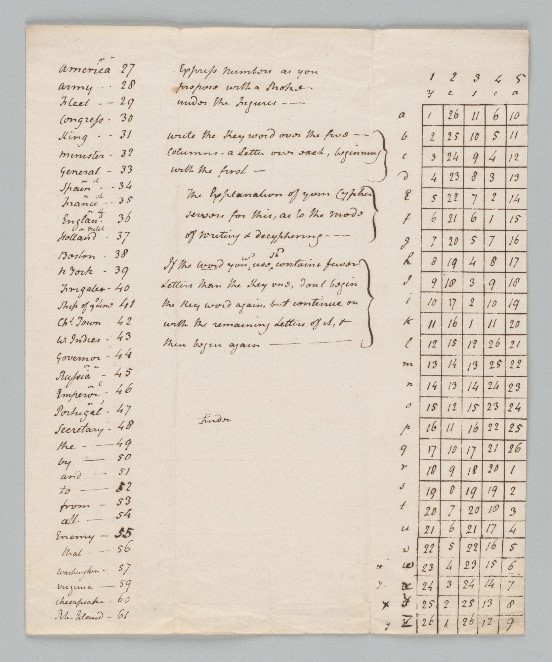 America 27
Army - 28
Fleet - 29
Congress - 30
King - 31
minister - 32
General - 33
Spain - 34
France - 35
England 36
Holland 37
Boston - 38
N York - 39
Frigates - 40
Ship of ye Line 41
Chs Town 42
W. Indies - 43
Governor - 44
Russia - 45
Emperor - 46
Portugal - 47
Secretary - 48
the - 49
by - 50
and - 51
to - 52
from - 53
all - 54
Enemy - 55
that - 56
Washington - 57
Virginia - 59
Chesapeake - 60
Rh. Island - 61
Express Numbers as you
propose with a Stroke
under the Figures
write the Key word over the five
Columns - a Letter over each, beginning
with the first
The Explanation of your Cypher
serves for this, as to the mode
of writing & decyphering
If the word you use, contains fewer
Letters than the Key one, dont begin
the Key word again, but continue on
with the remaining Letters of it, &
then begin again
1 2 3 4 5
a 1 26 11 6 10
b 2 25 10 5 11
c 3 24 9 4 12
d 4 23 8 3 13
E 5 22 7 2 14
f 6 21 6 1 15
g 7 20 5 7 16
h 8 19 4 8 17
9 18 3 9 18
i 10 17 2 10 19
k 11 16 1 11 20
l 12 15 12 26 21
m 13 14 13 25 22
n 14 13 14 24 23
o 15 12 15 23 24
p 16 11 16 22 25
q 17 10 17 21 26
r 18 9 18 20 1
s 19 8 19 19 2
t 20 7 20 18 3
u 21 6 21 17 4
v 22 5 22 16 5
w 23 4 23 15 6
24 3 24 14 7
25 2 25 13 8
26 1 26 12 9